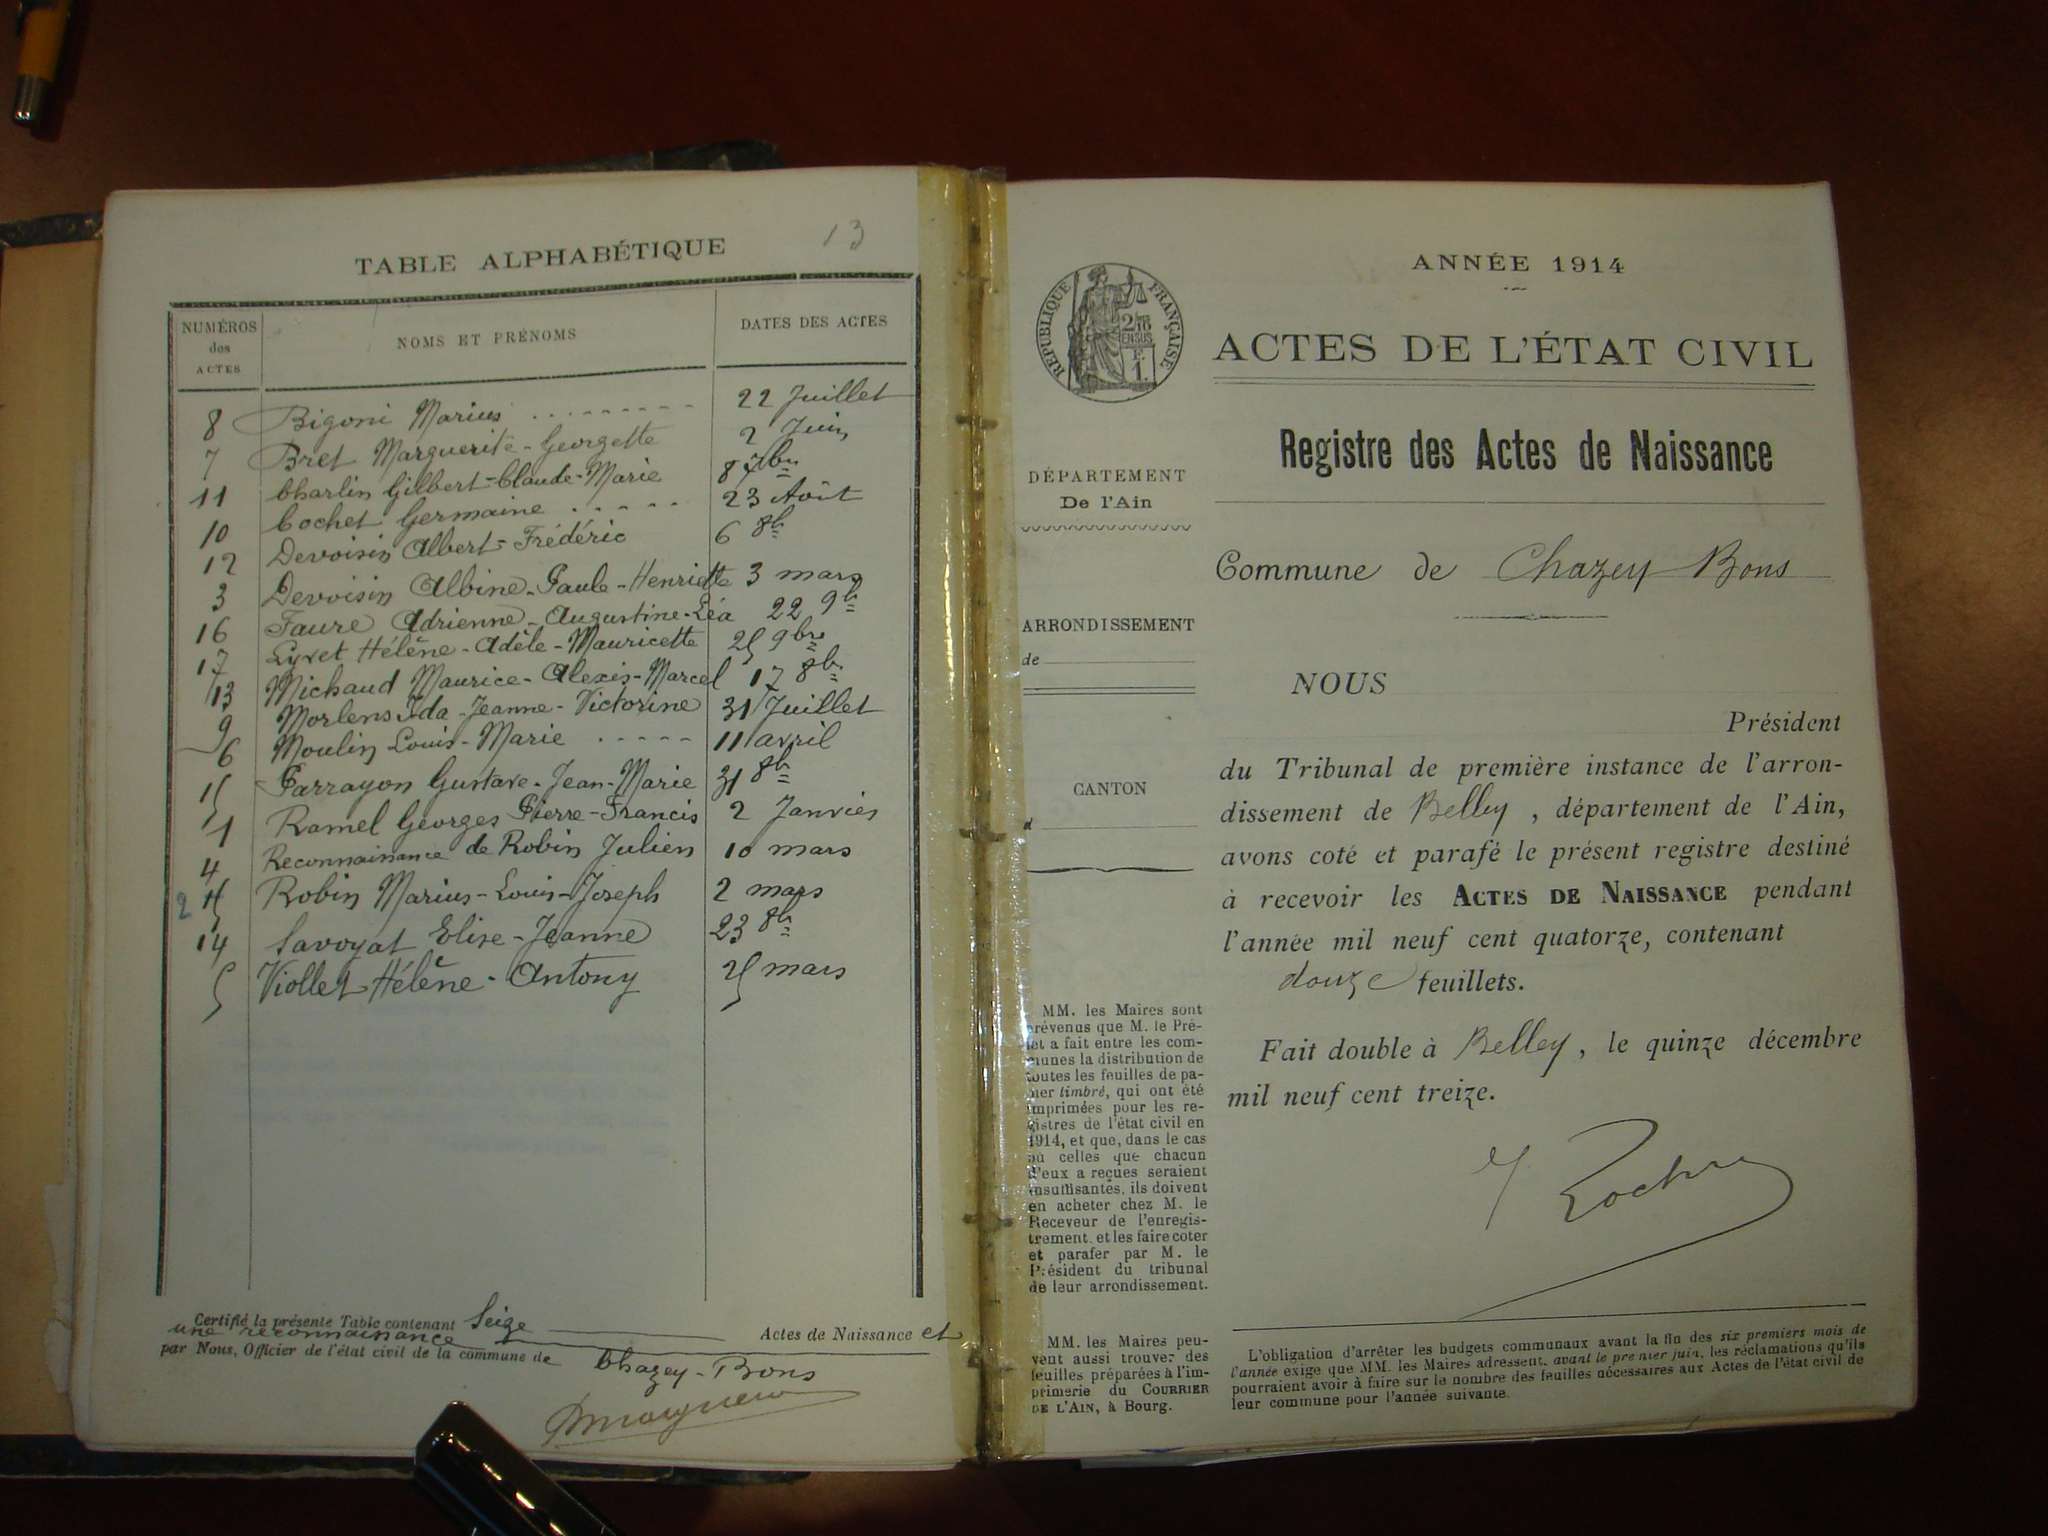 13
TABLE ALPHABÉTIQUE
NUMÉROS des ACTES
NOMS ET PRÉNOMS
DATES DES ACTES
8 Bigoni Marius . . . . . . . . . 22 Juillet
7 Bret Marguerite-Georgette 2 Juin
11 Charlin Gilbert-Claude-Marie 8 7bre
10 Cochet Germaine . . . . . . 23 Août
12 Devoisin Albert-Frédéric 6 8b
3 Devoisin Albine-Paule-Henriette 3 mars
16 Faure Adrienne-Augustine-Léa 22 9b
17 Lyvet Hélène-Adèle-Mauricette 25 9bre
13 Michaud Maurice-Alexis-Marcel 17 8b
9 Morlens Ida-Jeanne-Victorine 31 Juillet
6 Moulin Louis-Marie . . . . . 11 avril
15 Parrayon Gustave-Jean-Marie 31 8b
1 Ramel Georges Pierre-Francis 2 Janvier
4 Reconnaissance de Robin Julien 10 mars
2 Robin Marius-Louis-Joseph 2 mars
14 Savoyat Elise-Jeanne 23 8b
5 Viollet Hélène-Antony 25 mars
Certifié la présente Table contenant Seize Actes de Naissance et
une reconnaissance
par Nous, Officier de l'état civil de la commune de Chazey-Bons
ANNÉE 1914
RÉPUBLIQUE FRANÇAISE
ACTES DE L'ÉTAT CIVIL
Registre des Actes de Naissance
DÉPARTEMENT
De l'Ain
Commune de Chazey Bons
ARRONDISSEMENT
de
CANTON
d
NOUS
Président
du Tribunal de première instance de l'arron-
dissement de Belley, département de l'Ain,
avons coté et parafé le présent registre destiné
à recevoir les ACTES DE NAISSANCE pendant
l'année mil neuf cent quatorze, contenant
douze feuillets.
Fait double à Belley, le quinze décembre
mil neuf cent treize.
MM. les Maires sont
prévenus que M. le Pré-
fet a fait entre les com-
munes la distribution de
toutes les feuilles de pa-
pier timbré, qui ont été
imprimées pour les re-
gistres de l'état civil en
1914, et que, dans le cas
où celles que chacun
d'eux a reçues seraient
insuffisantes, ils doivent
en acheter chez M. le
Receveur de l'enregis-
trement. et les faire coter
et parafer par M. le
Président du tribunal
de leur arrondissement.
MM. les Maires peu-
vent aussi trouver des
feuilles préparées à l'im-
primerie du COURRIER
DE L'AIN, à Bourg.
L'obligation d'arrêter les budgets communaux avant la fin des six premiers mois de
l'année exige que MM. les Maires adressent, avant le premier juin, les réclamations qu'ils
pourraient avoir à faire sur le nombre des feuilles nécessaires aux Actes de l'état civil de
leur commune pour l'année suivante.